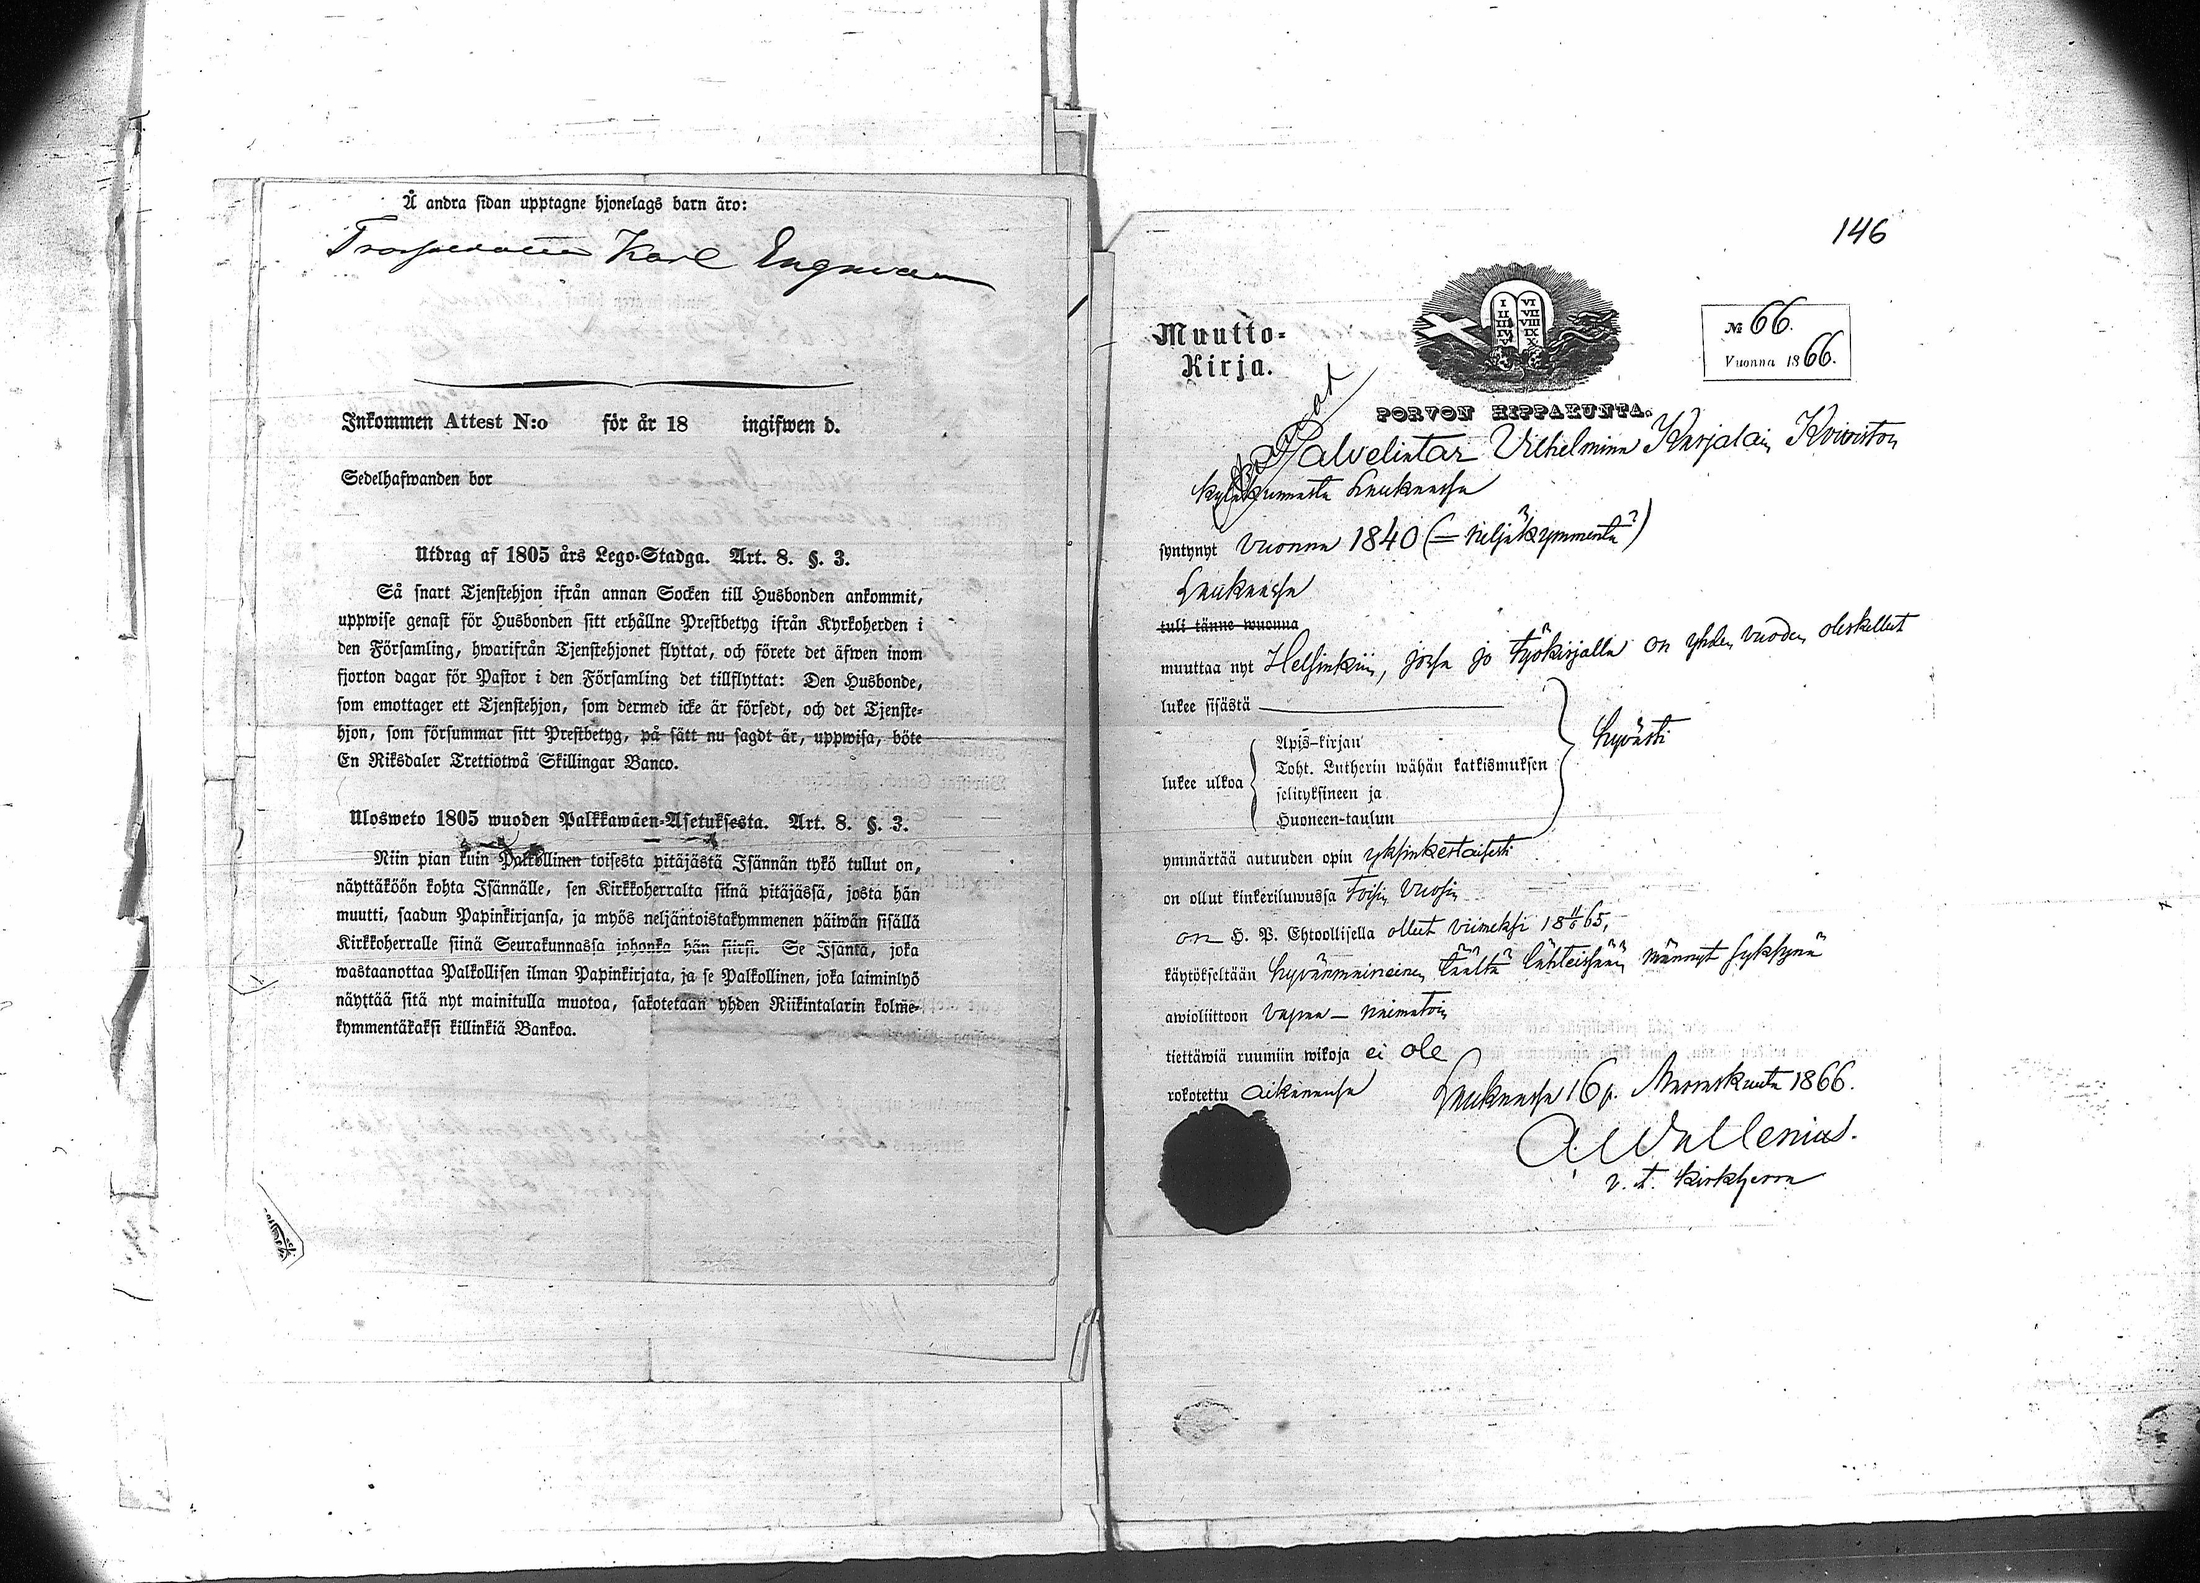 Å andra sidan upptagne hjonelags barn äro:
Karl Engman
Inkommen Attest N:o för år 18 ingifwen d.
Sedelhafwanden bor
Utdrag af 1805 års Lego-Stadga. Art. 8. §. 3.
Så snart Tjenstehjon ifrån annan Socken till Husbonden ankommit,
uppwise genast för Husbonden sitt erhållne Prestbetyg ifrån Kyrkoherden i
den Församling, hwarifrån Tjenstehjonet flyttat, och förete det äfwen inom
fjorton dagar för Pastor i den Församling det tillflyttat: Den Husbonde,
som emottager ett Tjenstehjon, som dermed icke är försedt, och det Tjenste-
hjon, som försummar sitt Prestbetyg, på sätt nu sagdt är, uppwisa, böte
En Riksdaler Trettiotwå Skillingar Banco.
Ulosweto 1805 wuoden Palkkawäen-Asetuksesta. Art. 8. §. 3.
Niin pian kuin Palkollinen toisesta pitäjästä Isännän tykö tullut on,
näyttäköön kohta Isännälle, sen Kirkkoherralta siinä pitäjässä, josta hän
muutti, saadun Papinkirjansa, ja myös neljäntoistakymmenen päiwän sisällä
Kirkkoherralle siinä Seurakunnassa johonka hän siirsi. Se Isäntä, joka
wastaanottaa Palkollisen ilman Papinkirjata, ja se Palkollinen, joka laiminlyö
näyttää sitä nyt mainitulla muotoa, sakotetaan yhden Riikintalarin kolme-
kymmentäkaksi killinkiä Bankoa.
146
Muutto-
Kirja.
I II III IV V VI VII VIII IX X
№ 66.
Vuonna 1866.
PORVON HIPPAKUNTA.
Palvelintar Vilhelmina Karjalain Koiviston
kyläkunnasta Laukaassa
syntynyt vuonna 1840 (= neljäkymmentä)
Laukaassa
tuli tänne wuonna
muuttaa nyt Helsinkiin, jossa jo työkirjalla on yhden vuoden oleskellut
lukee sisästä
lukee ulkoa
Apis-kirjan
Toht. Lutherin wähän katkismuksen
selityksineen ja
Huoneen-taulun
hyvästi
ymmärtää autuuden opin yksinkertaisesti
on ollut kinkeriluwussa toisin vuosin
on H. P. Ehtoollisella ollut viimeksi 18 65,
käytökseltään hyvänmaineinen täältä lähteissään männyt syksynä
awioliittoon vapaa — naimatoin
tiettäwiä ruumiin wikoja ei ole
rokotettu aikanansa
Laukaassa 16 p. Marraskuuta 1866.
A. Wallenius.
v. t. kirkkherra